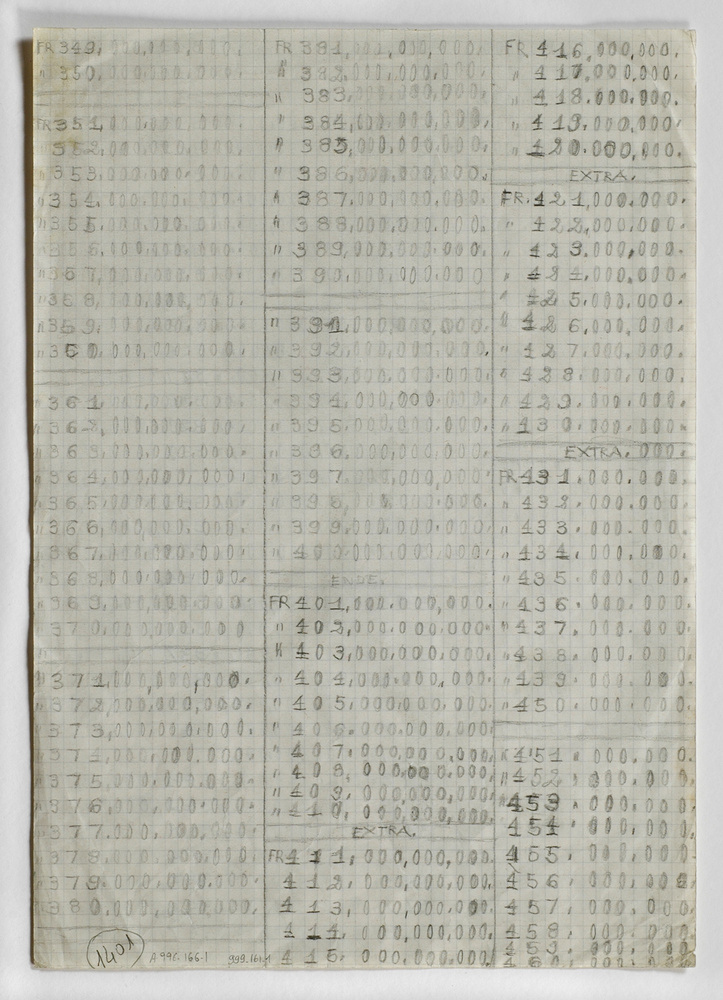 FR 349,000,000,000.
" 350,000,000,000.
FR 351,000,000,000.
" 352,000,000,000.
" 353,000,000,000.
" 354,000,000,000.
" 355,000,000,000.
" 356,000,000,000.
" 367,000,000,000.
" 358,000,000,000.
" 359,000,000,000.
" 350,000,000,000.
" 361,000,000,000.
" 362,000,000,000.
" 363,000,000,000.
" 364,000,000,000.
" 365,000,000,000.
" 366,000,000,000.
" 367,000,000,000.
" 368,000,000,000.
" 369,000,000,000.
" 370,000,000,000
" 371,000,000,000.
" 372,000,000,000.
" 373,000,000,000.
" 374,000,000.000.
" 375,000,000.000.
" 376,000,000,000.
" 377.000,000,000.
" 378,000,000,000.
" 379.000,000,000.
" 380,000,000,000.
1401
A 996.166-1
999.161-1
FR 381,000,000,000.
" 382,000,000,000.
" 383,000,000,000.
" 384,000,000,000.
" 385,000,000,000.
" 386,000,000,000.
" 387,000,000,000.
" 388,000,000.000.
" 389,000,000,000.
" 390,000,000,000
" 391,000,000,000.
" 392,000,000,000.
" 393,000,000,000.
" 394,000,000,000.
" 395,000,000,000.
" 396,000,000,000.
" 397,000,000,000.
" 398,000,000,000.
" 399,000,000,000.
" 400,000,000,000.
ENDE.
FR 401,000.000,000.
" 402,000.000.000.
" 403,000,000,000.
" 404,000.000,000.
" 405,000,000,000.
" 406.000,000.000.
" 407,000,000,000.
" 408, 000,000,000.
" 409, 000,000,000.
" 410, 000,000,000.
EXTRA.
FR 411, 000,000,000.
412, 000,000,000.
413, 000,000,000.
414, 000,000,000.
415, 000,000,000.
FR 416,000,000.
" 417,000,000.
" 418.000,000.
" 419.000,000.
" 420.000,000.
EXTRA.
FR. 421,000.000.
" 422,000,000.
" 423.000,000.
" 424,000,000.
" 425,000,000.
" 426,000,000.
" 427,000,000.
" 428,000,000.
" 429,000,000.
" 430,000,000.
EXTRA. 000.
FR 431,000.000.
" 432,000,000.
" 433,000.000.
" 434,000,000.
" 435,000.000.
" 436,000,000.
" 437,000,000.
" 438,000,000.
" 439,000,000.
" 450,000,000.
" 451,000,000.
" 452,000,000.
" 453,000,000.
454,000,000.
455,000,000.
456,000,000.
457,000,000.
458,000,000.
459,000,000.
460,000,000.